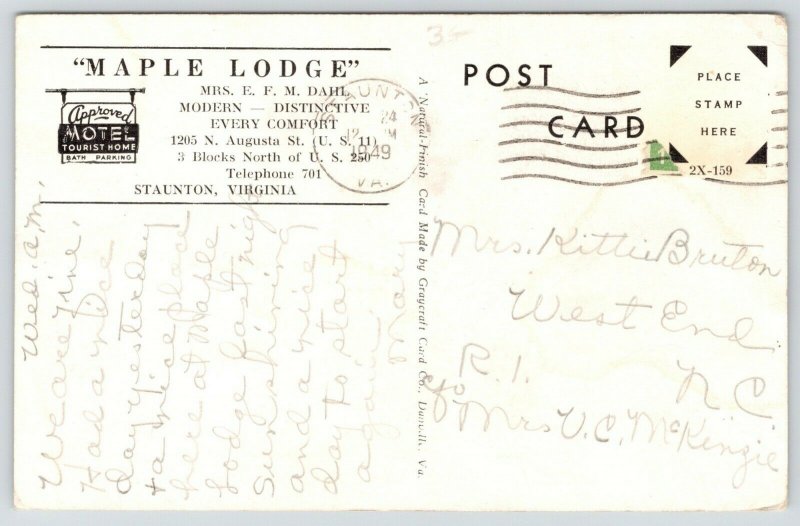 "MAPLE LODGE"
MRS. E. F. M. DAHL
MODERN — DISTINCTIVE
EVERY COMFORT
1205 N. Augusta St. (U. S. 11)
3 Blocks North of U. S. 250
Telephone 701
STAUNTON, VIRGINIA
Approved
MOTEL
TOURIST HOME
BATH PARKING
STAUNTON
24
12 M
1949
VA.
Wed. a.m.
We are fine.
Had a nice
day yesterday
+ a nice place
here at Maple
Lodge last night
Sun shining
and a nice
day to start
again.
Mary
A "Natural-Finish Card Made by Graycraft Card Co., Danville, Va.
35
POST
CARD
PLACE
STAMP
HERE
2X-159
Mrs. Kittie Bruton
West End
R. 1. N C
c/o Mrs V. C. McKinzie